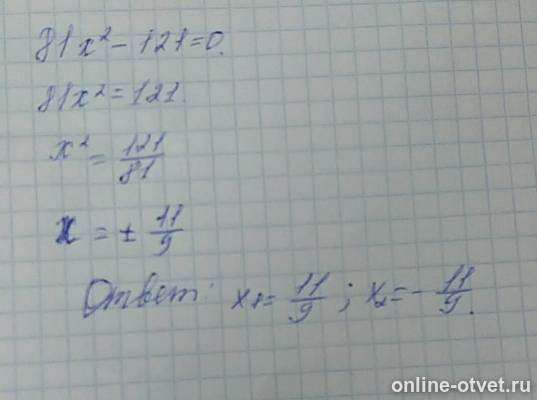 81x² - 121 = 0.
81x² = 121.
x² = 121/81
x = ± 11/9
Ответ: x₁ = 11/9 ; x₂ = - 11/9.
online-otvet.ru